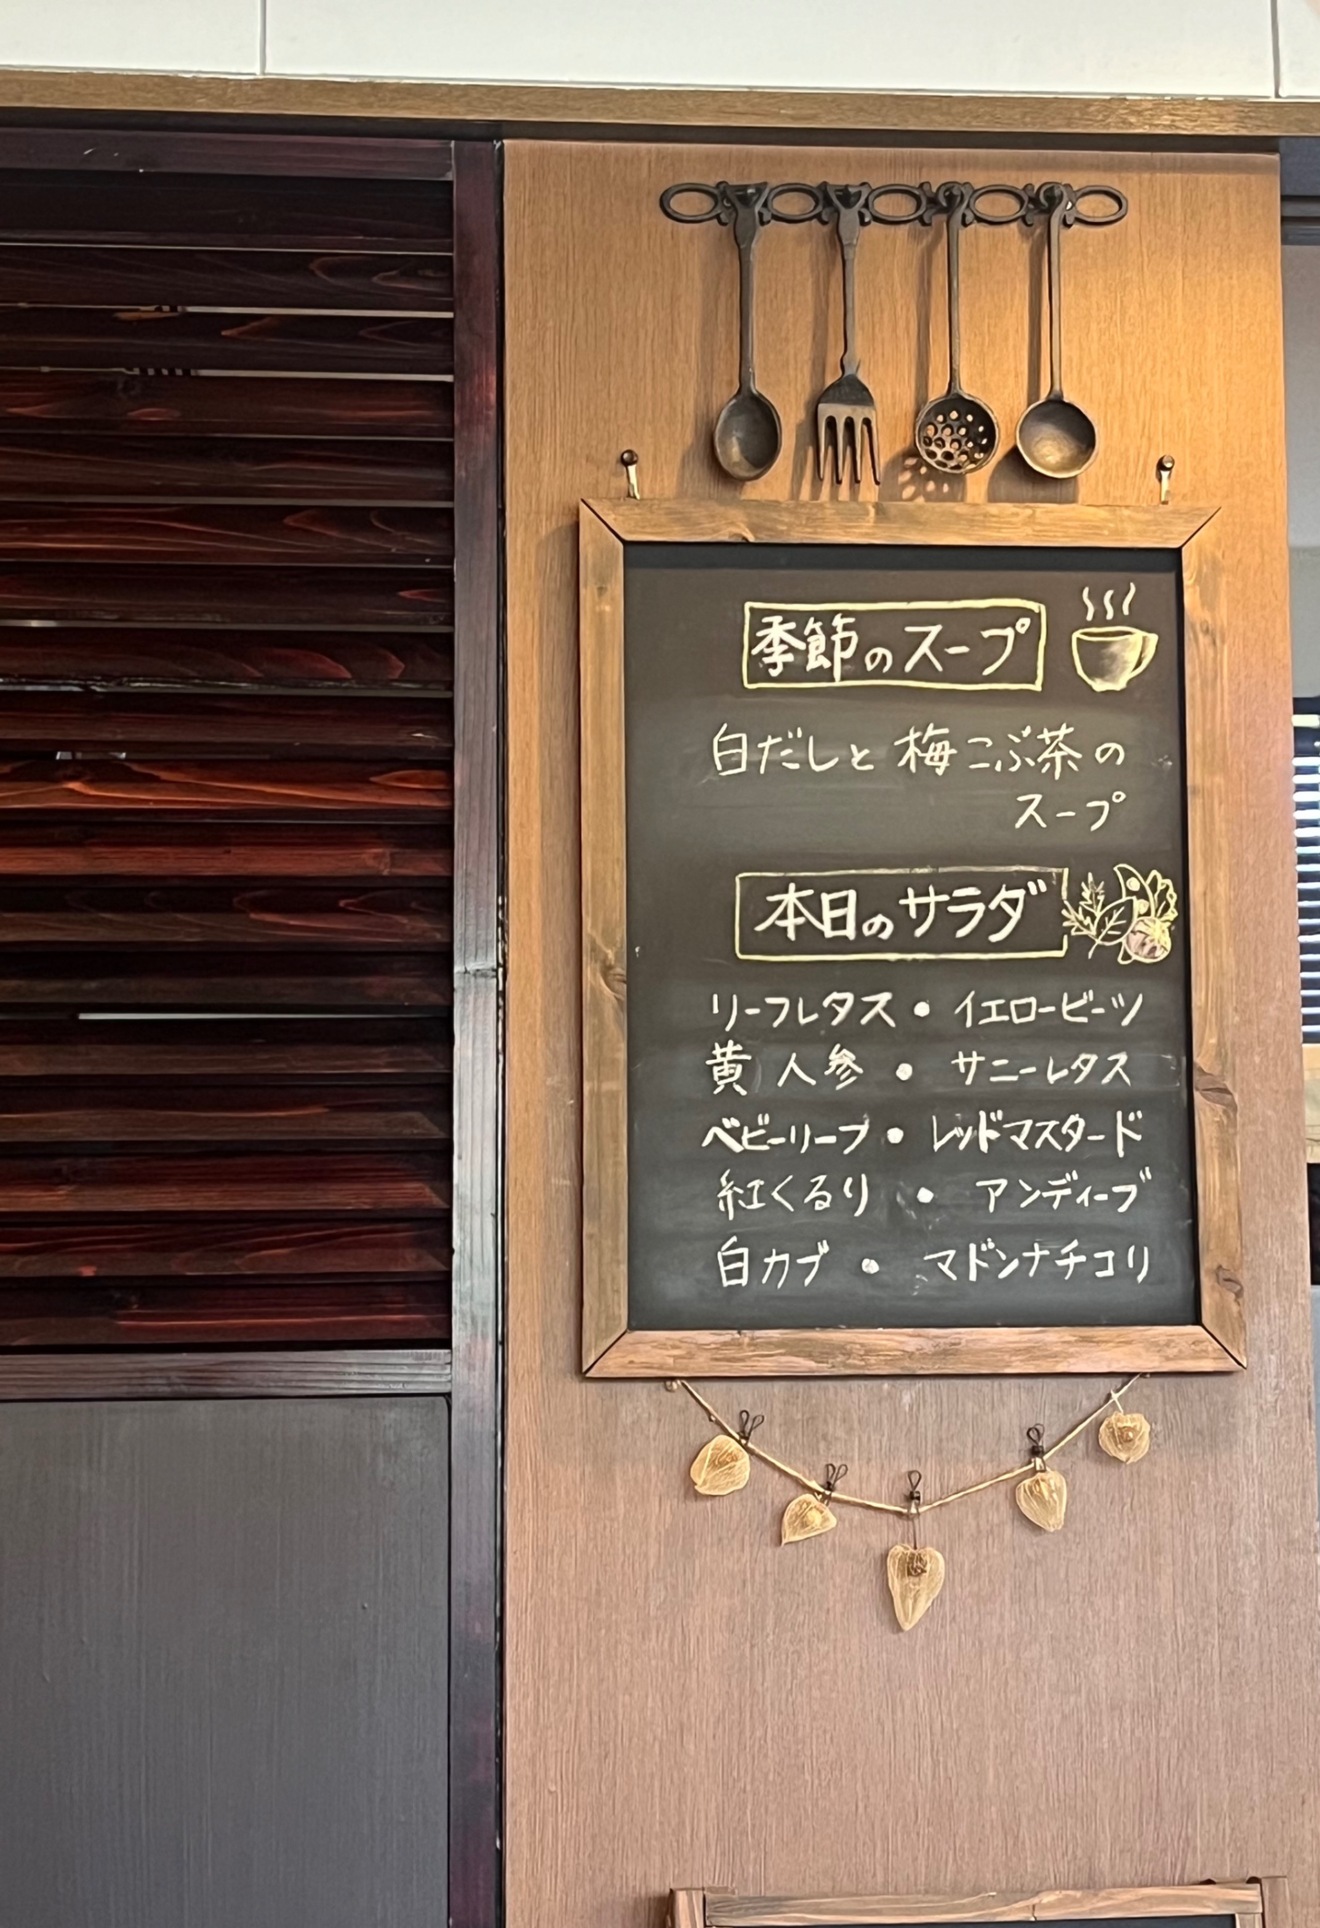 季節のスープ
白だしと梅こぶ茶の
スープ
本日のサラダ
リーフレタス・イエロービーツ
黄人参・サニーレタス
ベビーリーフ・レッドマスタード
紅くるり・アンディーブ
白カブ・マドンナチコリ